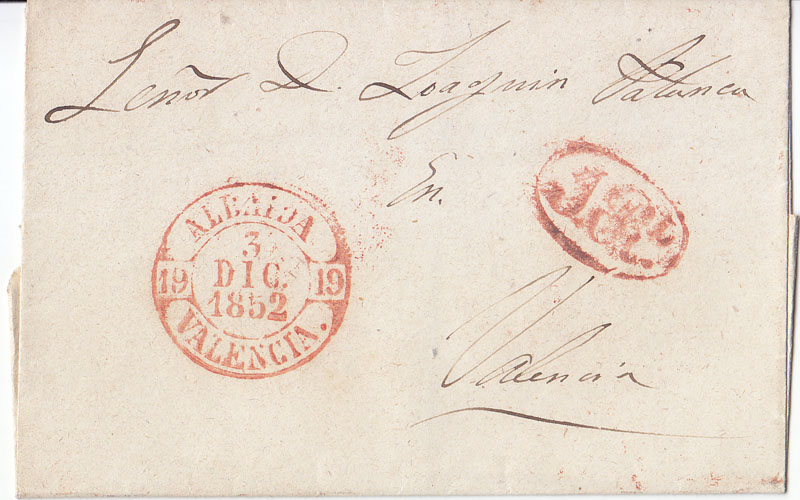 Señor D. Joaquin Palanca
En.
Valencia
ALBAIDA
3
DIC.
1852
19 19
VALENCIA.